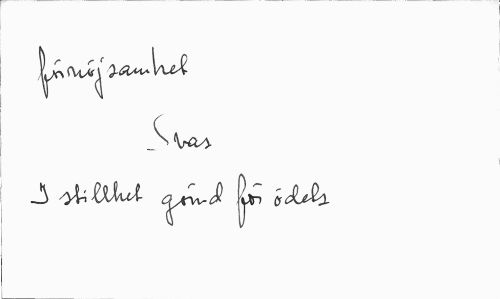 förnöjsamhet
Svas
I stillhet gömd för ödets